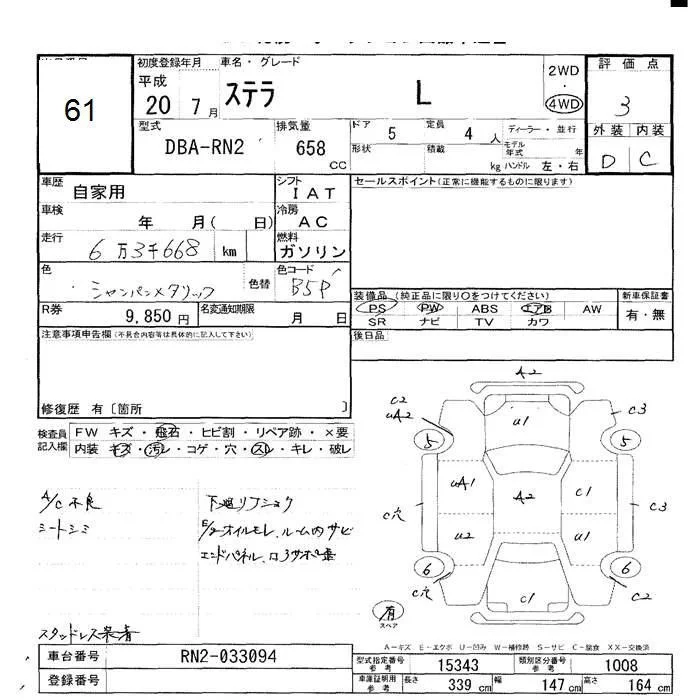 61
初度登録年月 車名・グレード
平成 20 7月 ステラ L 2WD 4WD
評価点 3
型式 DBA-RN2 排気量 658 CC
ドア 5 定員 4 人 ディーラー・並行
形状 積載 kg モデル年式 年 ハンドル 左・右
外装 内装
D C
車歴 自家用 シフト IAT
車検 年 月( 日) 冷房 AC
走行 6万3千668 km 燃料 ガソリン
色 シャンパンメタリック 色替 色コード B5P
R券 9,850円 名変通知期限 月 日
セールスポイント(正常に機能するものに限ります)
装備品 (純正品に限り○をつけてください) 新車保証書
PS PW ABS エアB AW 有・無
SR ナビ TV カワ
後日品
注意事項申告欄(不具合内容等は具体的に記入して下さい)
修復歴 有〔箇所 〕
検査員記入欄 FW キズ・飛石・ヒビ割・リペア跡・×要
内装 キズ・汚レ・コゲ・穴・スレ・キレ・破レ
A/C不良
シートシミ
スタッドレス装着
下廻リフショク
E/gオイルモレ、ルーム内サビ
エンドパネル、
A2
C2 UA2 U1 C3
5 5
UA1 A2 C1
C穴 C3
U2 U1
6 6
C穴 C1 C2
有 スペア
A-キズ E-エクボ U-凹み W-補修跡 S-サビ C-腐食 XX-交換済
車台番号 RN2-033094
登録番号
型式指定番号 参考 15343 類別区分番号 参考 1008
車庫証明用 参考 長さ 339 cm 幅 147 cm 高さ 164 cm